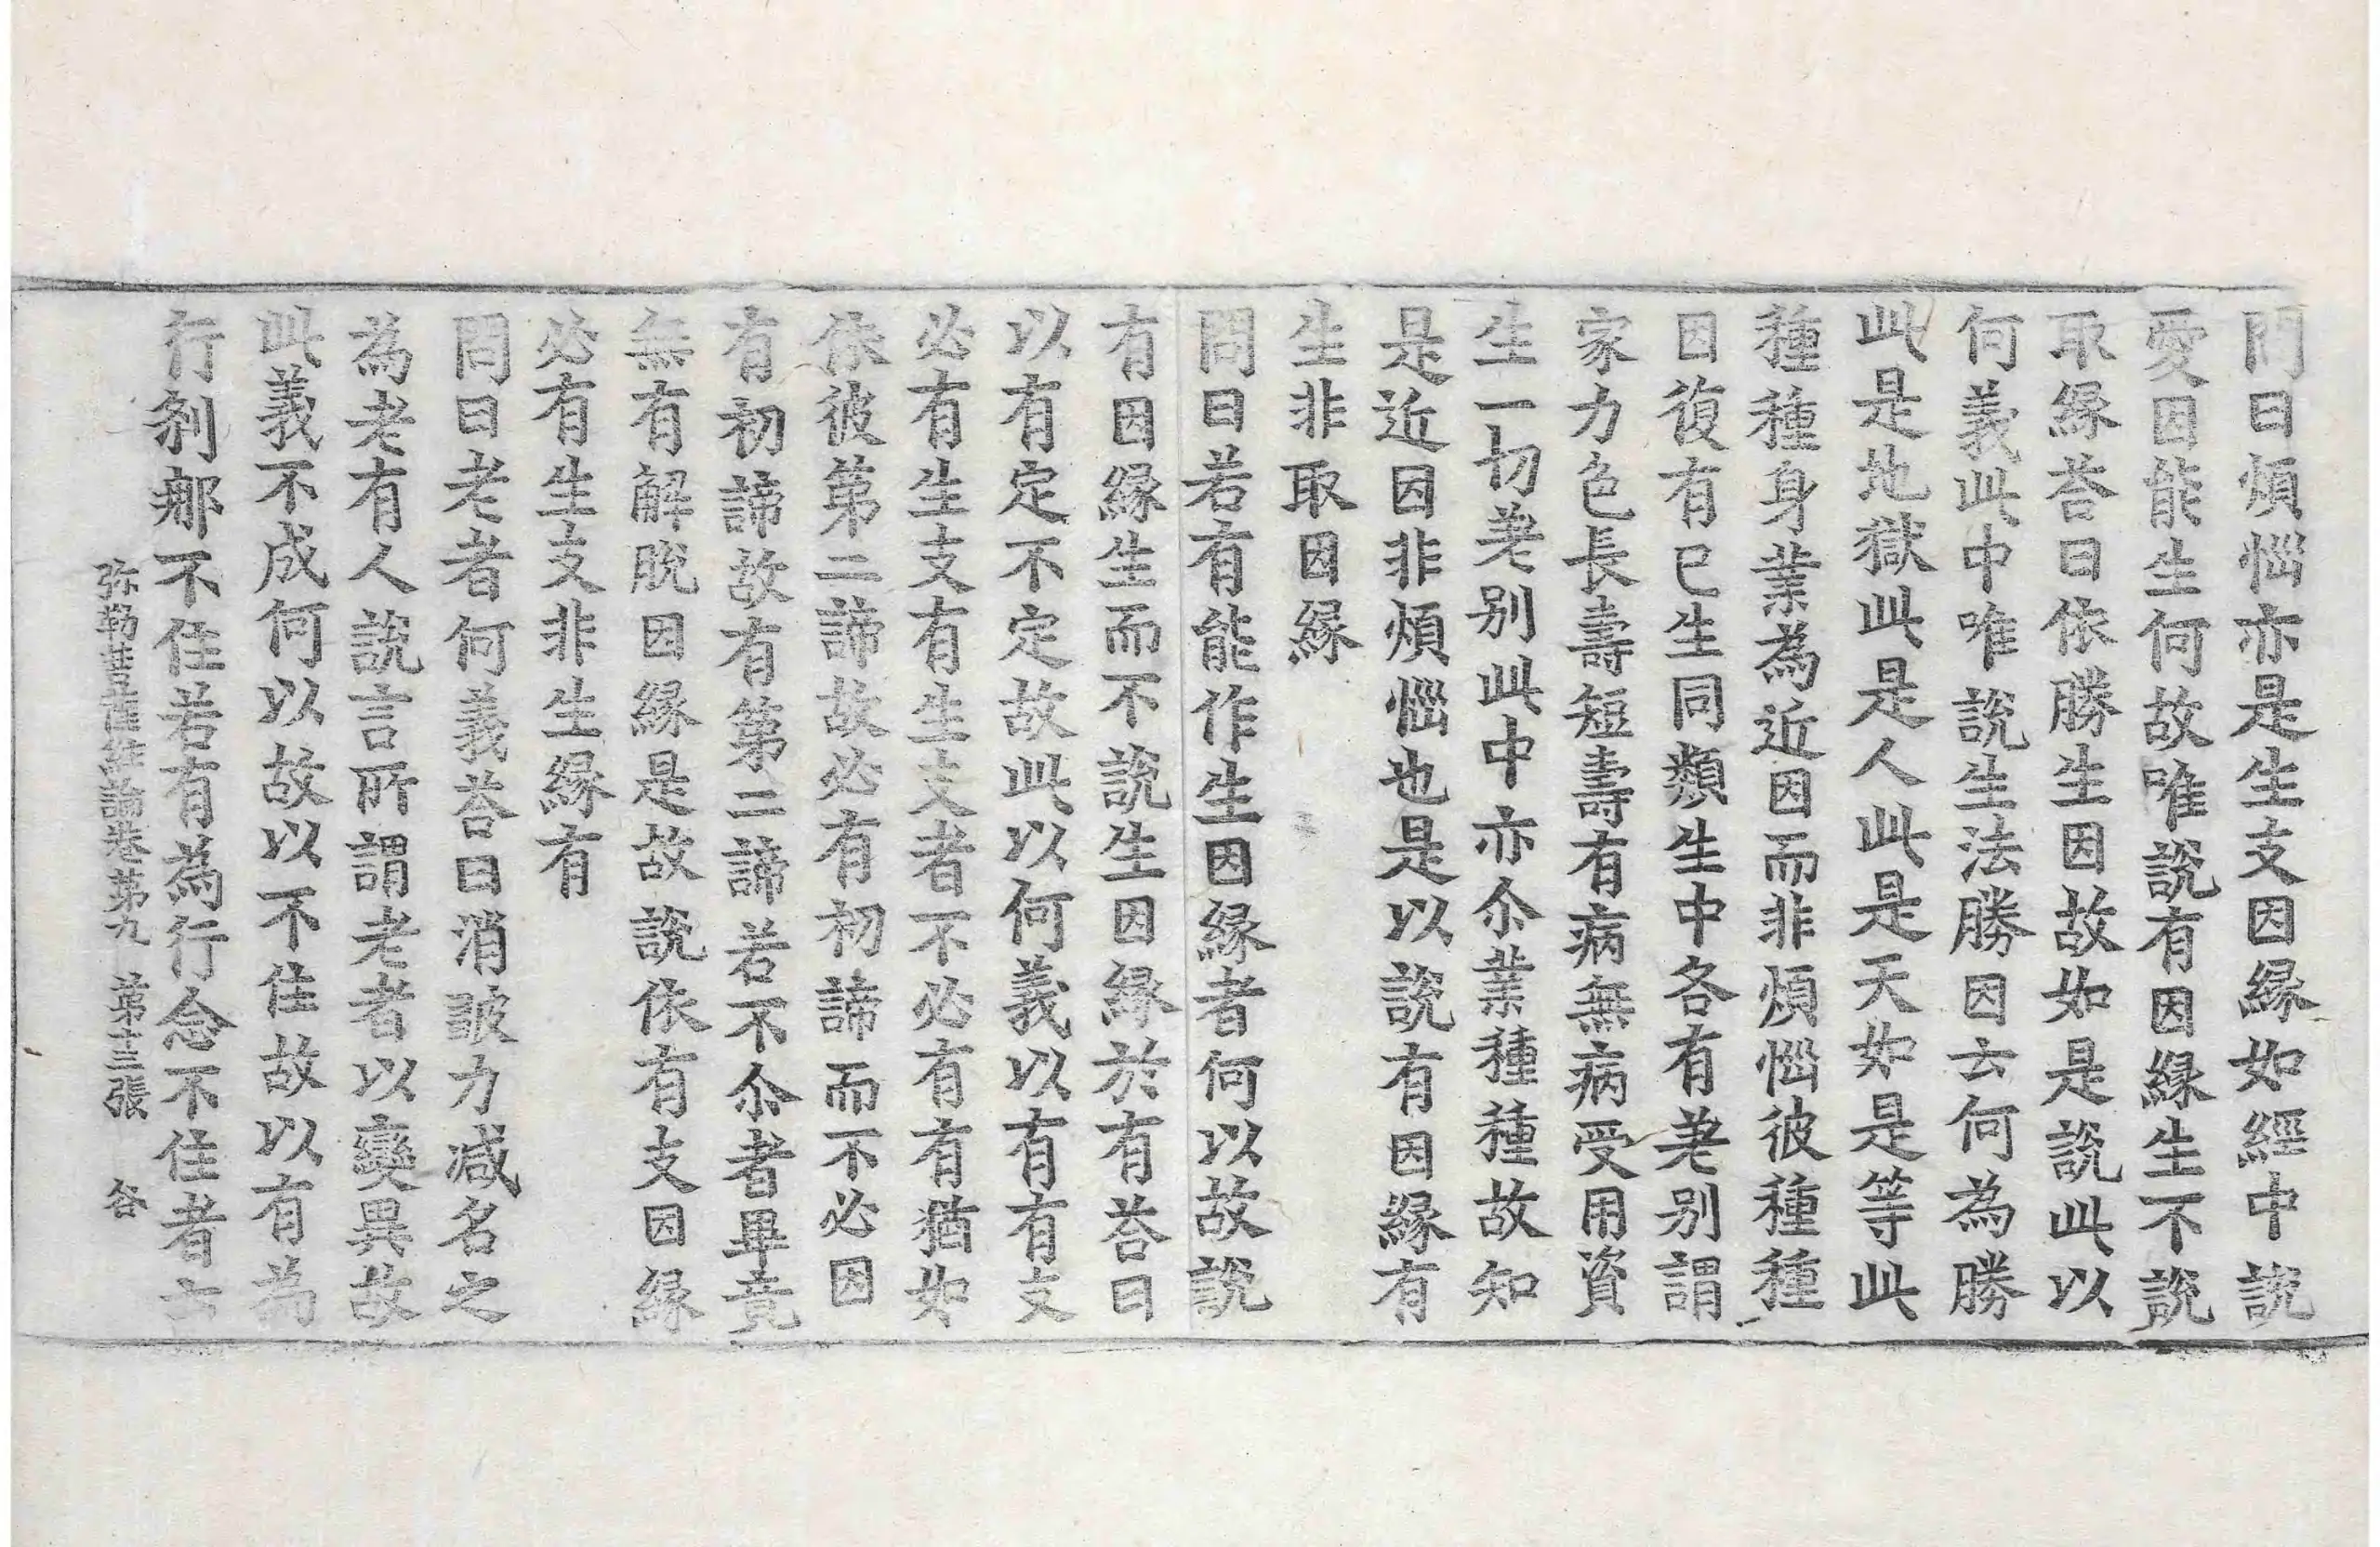 問曰煩惱亦是生支因緣如經中說
愛因能生何故唯說有因緣生不說
取緣荅曰依勝生因故如是說此以
何義此中唯說生法勝因云何為勝
此是地獄此是人此是天如是等此
種種身業為近因而非煩惱彼種種
因復有已生同類生中各有差別謂
家力色長壽短壽有病無病受用資
生一切差別此中亦尒業種種故知
是近因非煩惱也是以說有因緣有
生非取因緣
問曰若有能作生因緣者何以故說
有因緣生而不說生因緣於有荅曰
以有定不定故此以何義以有有支
必有生支有生支者不必有有猶如
依彼第二諦故必有初諦而不必因
有初諦故有第二諦若不尒者畢竟
無有解脫因緣是故說依有支因緣
必有生支非生緣有
問曰老者何義荅曰消皷力減名之
為老有人說言所謂老者以變異故
此義不成何以故以不住故以有為
行剎那不住若有為行念不住者云
弥勒菩薩經論卷第九　第十三張　谷